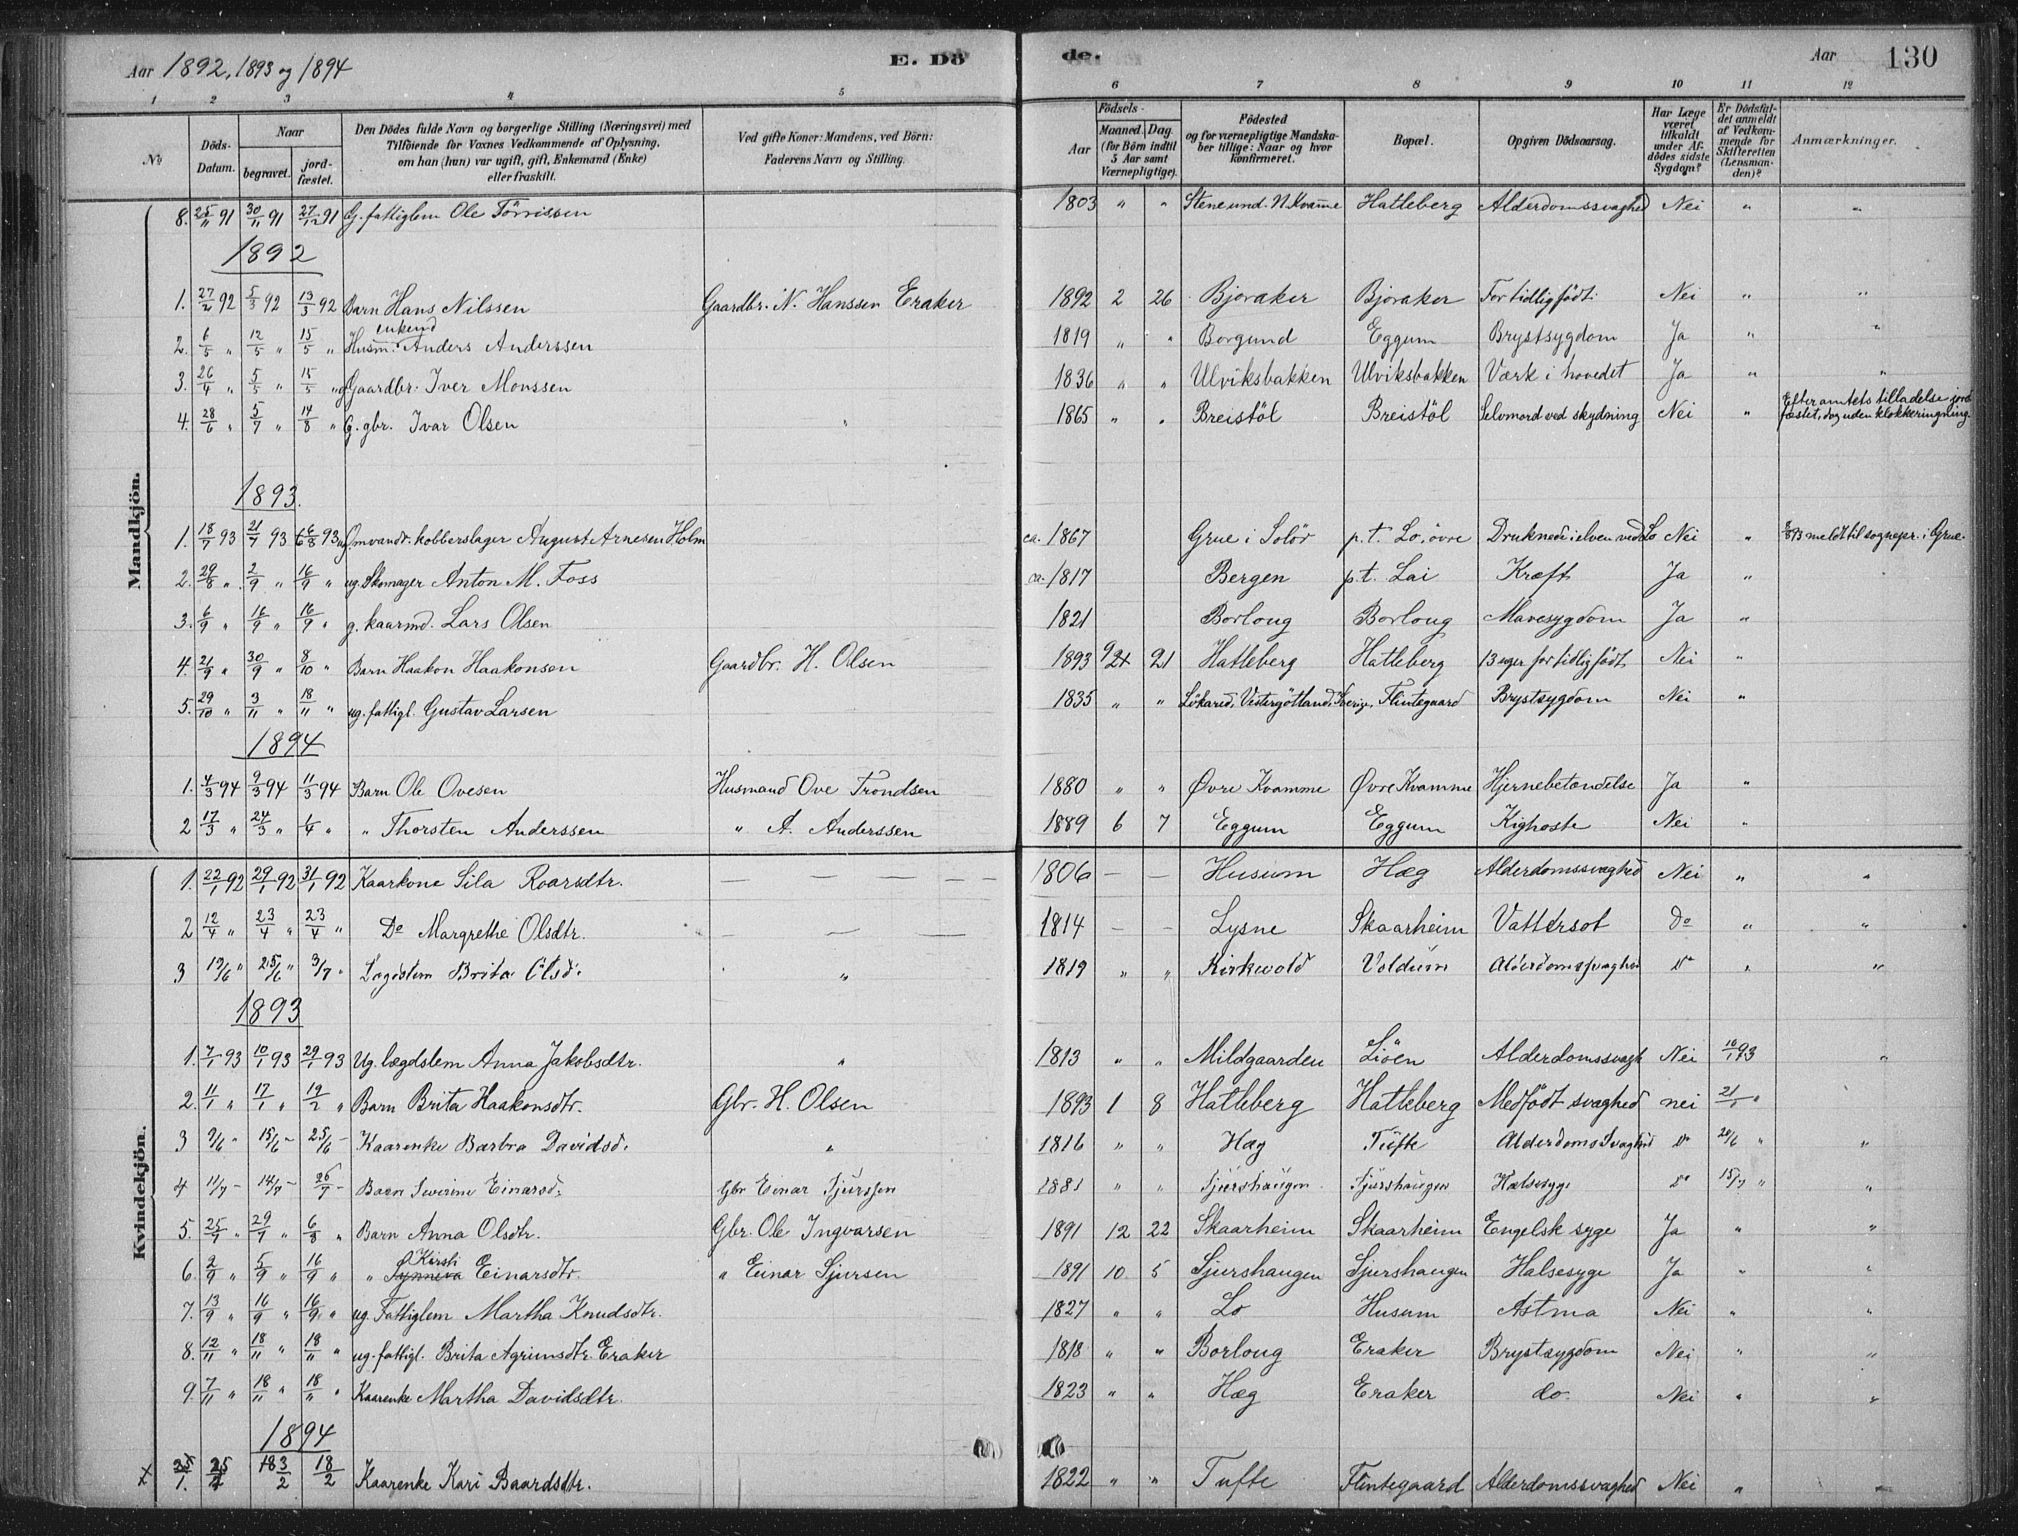 Aar 1892, 1893 og 1894 E. Dö de. Aar 130
1 2 3 4 5 6 7 8 9 10 11 12
No Döds-Datum. Naar begravet. jord-fæstet. Den Dödes fulde Navn og borgerlige Stilling (Næringsvei) med Tilföiende for Voxnes Vedkommende af Oplysning, om han (hun) var ugift, gift, Enkemand (Enke) eller fraskilt. Ved gifte Koner: Mandens, ved Börn: Faderens Navn og Stilling. Födsels- Aar Maaned. Dag. (for Börn indtil 5 Aar samt Værnepligtige). Födested og for værnepligtige Mandska-ber tillige: Naar og hvor konfirmeret. Bopæl. Opgiven Dödsaarsag. Har Læge været tilkaldt under Af-dödes sidste Sygdom? Er Dödsfal-det anmeldt af Vedkom-mende for Skifteretten (Lensman-den)? Anmærkninger.
Mandkjön.
8. 25/11 91 30/11 91 27/12 91 G. fattiglem Ole Törrissen 1803 " " Steneund. N. Kvamme Hatleberg Alderdomssvaghed Nei " "
1892
1. 27/2 92 5/3 92 13/3 92 Barn Hans Nilssen Gaardbr. N. Hanssen Eraker 1892 2 26 Bjoraker Bjoraker For tidlig födt. Nei " "
2. 6/5 " 12/5 " 15/5 " Husm. enkemd Anders Anderssen 1819 " " Borgund Eggum Brystsygdom Ja " "
3. 26/4 " 5/5 " 15/5 " g Gaardbr. Iver Monssen 1836 " " Ulviksbakken Ulviksbakken Værk i hovedet Ja " "
4. 28/6 " 5/7 " 14/8 " G. gbr. Ivar Olsen " 1865 " " Breistöl Breistöl Selvmord ved skydning Nei " Efter amtets tilladelse jord
fæstet, dog uden klokkeringning.
1893.
1. 18/7 93 21/7 93 6/8 93 ug Omvandr. kobberslager August Arnesen Holm ca. 1867 Grue i Solör p.t. Lo, övre Druknede i elven ved Lo Nei " meldt til sognepr. i Grue.
2. 29/8 " 2/9 " 16/9 " ug. Skomager Anton M. Foss ca. 1817 Bergen p.t. Lai Kræft Ja "
3. 6/9 " 16/9 " 16/9 " g. kaarmd. Lars Olsen 1821 Borloug Borloug Mavesygdom Ja "
4. 21/9 " 30/9 " 8/10 " Barn Haakon Haakonsen Gaardbr. H. Olsen 1893 9 21 Hatleberg Hatleberg 13 uger for tidlig födt Nei "
5. 29/10 " 3/11 " 18/11 " ug. fattigl. Gustav Larsen 1835 " " Lökared, Vestergötland, Sverige, Flintegaard Brystsygdom Nei "
1894
1. 4/3 94 9/3 94 11/3 94 Barn Ole Ovesen Husmand Ove Trondsen 1880 " " Øvre Kvamme Øvre Kvamme Hjernebetændelse Ja "
2 17/3 " 24/3 " 1/4 " " Thorsten Anderssen " A. Anderssen 1889 6 7 Eggum Eggum Kighoste Nei "
Kvindekjön.
1. 22/1 92 29/1 92 31/1 92 Kaarkone Sila Roarsdtr. — — — — — 1806 — — Husum Hæg Alderdomssvaghed Nei " "
2 12/4 " 23/4 " 23/4 " Do Margrethe Olsdtr. — — — 1814 — — Lysne Skaarheim Vattersot Do " "
3 19/6 " 25/6 " 3/7 " Lægdslem Brita Olsd. " 1819 " " Kirkevold Voldum Alderdomssvaghed Do " "
1893
1. 7/1 93 10/1 93 29/1 93 Ug. lægdslem Anna Jakobsdtr. " 1813 " " Mildgaarden Liöen Alderdomssvagh Nei 10/1 93 "
2. 11/1 " 17/1 " 19/2 " Barn Brita Haakonsdtr. Gbr. H. Olsen 1893 1 8 Hatleberg Hatleberg Medfödt svaghed nei 21/1 "
3 9/6 - 15/6 - 25/6 - Kaarenke Barbra Davidsd. " 1816 " " Hæg Tufte Alderdomssvaghed Do 20/6 " "
4 11/7 - 14/7 - 26/7 - Barn Severine Einarsd. Gbr Einar Sjurssen 1881 " " Sjurshaugen Sjurshaugen Halsesyge Do 15/7 " "
5. 25/7 " 29/7 " 6/8 " Barn Anna Olsdtr. Gbr. Ole Ingvarsen 1891 12 22 Skaarheim Skaarheim Engelsk syge Ja " "
6. 2/9 " 5/9 " 16/9 " " Kirsti Synneva Einarsdtr. " Einar Sjursen 1891 10 5 Sjurshaugen Sjurshaugen Halsesyge Ja " "
7. 13/9 " 16/9 " 16/9 " ug. Fattiglem Martha Knudsdtr. 1827 " " Lo Husum Astma Nei " "
8. 12/11 " 18/11 " 18/11 " ug. fattigl. Brita Agrimsdtr. Eraker 1818 " " Borloug Eraker Brystsygdom Nei " "
9. 7/11 " 18/11 " 18/11 " Kaarenke Martha Davidsdtr. 1823 " " Hæg Eraker do. Nei " "
1894
1. 25/1 3/2 18/2 Kaarenke Kari Baardsdtr. 1822 " " Tufte Flintegaard Alderdomssvaghed Nei " "